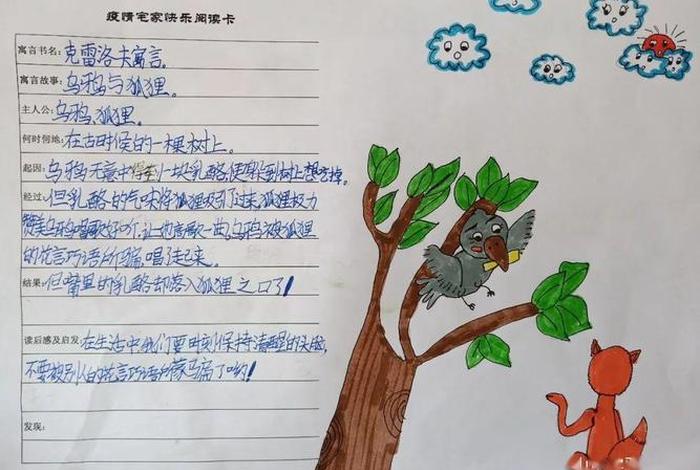 疫情宅家快乐阅读卡
寓言书名:克雷洛夫寓言。
寓言故事:乌鸦与狐狸。
主人公:乌鸦、狐狸。
何时何地:在古时候的一棵树上。
起因:乌鸦无意中得到一块乳酪,便躲到树上想享掉。
经过:但乳酪的气味将狐狸吸引了过来,狐狸极力
赞美乌鸦唱歌好听,让他高歌一曲,乌鸦被狐狸
的花言巧语所骗,唱了起来。
结果:但嘴里的乳酪却落入狐狸之口了!
读后感及启发:在生活中我们要时刻保持清醒的头脑,
不要被别人的花言巧语所蒙骗了哟!
发现: